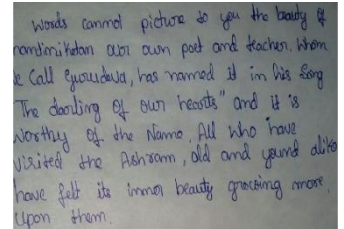 Words cannot picture to you the beauty of
nantiniketan our own poet and teacher. whom
e Call Gurudeva, has named it in his Song
The darling of our hearts" and it is
Worthy of the Name. All who have
visited the Ashram, old and yound alike
have felt its inner beauty growing more
upon them.